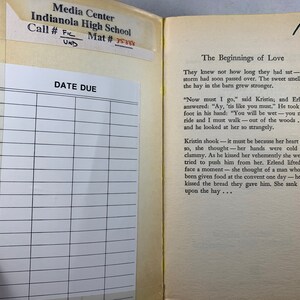 Media Center
Indianola High School
Call # Fic Mat #
Und
DATE DUE
The Beginnings of Love
They knew not how long they had sat —
storm had soon passed over. The sweet smell
the hay in the barn grew stronger.
"Now must I go," said Kristin; and Erl
answered: "Ay, 'tie like you must." He took
foot in his hand: "You will be wet — you m
ride and I must walk — out of the woods . .
and he looked at her so strangely.
Kristin shook — it must be because her heart
so, she thought — her hands were cold
clammy. As he kissed her vehemently she we
tried to push him from her. Erlend lifted
face a moment — she thought of a man who
been given food at the convent one day — he
kissed the bread they gave him. She sank
upon the hay . . .